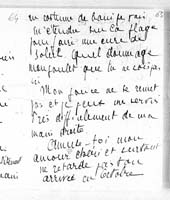 64 63
en costume de bain je vais
m'étendre sur la plage
pour faire une cure de
soleil. Quel dommage
mon poulet que tu ne sois pas
ici
Mon pouce ne se remet
pas et je peux me servir
très difficilement de ma
main droite
Amuse-toi mon
amour chéri et surtout
ne retarde pas ton
arrivée en Octobre